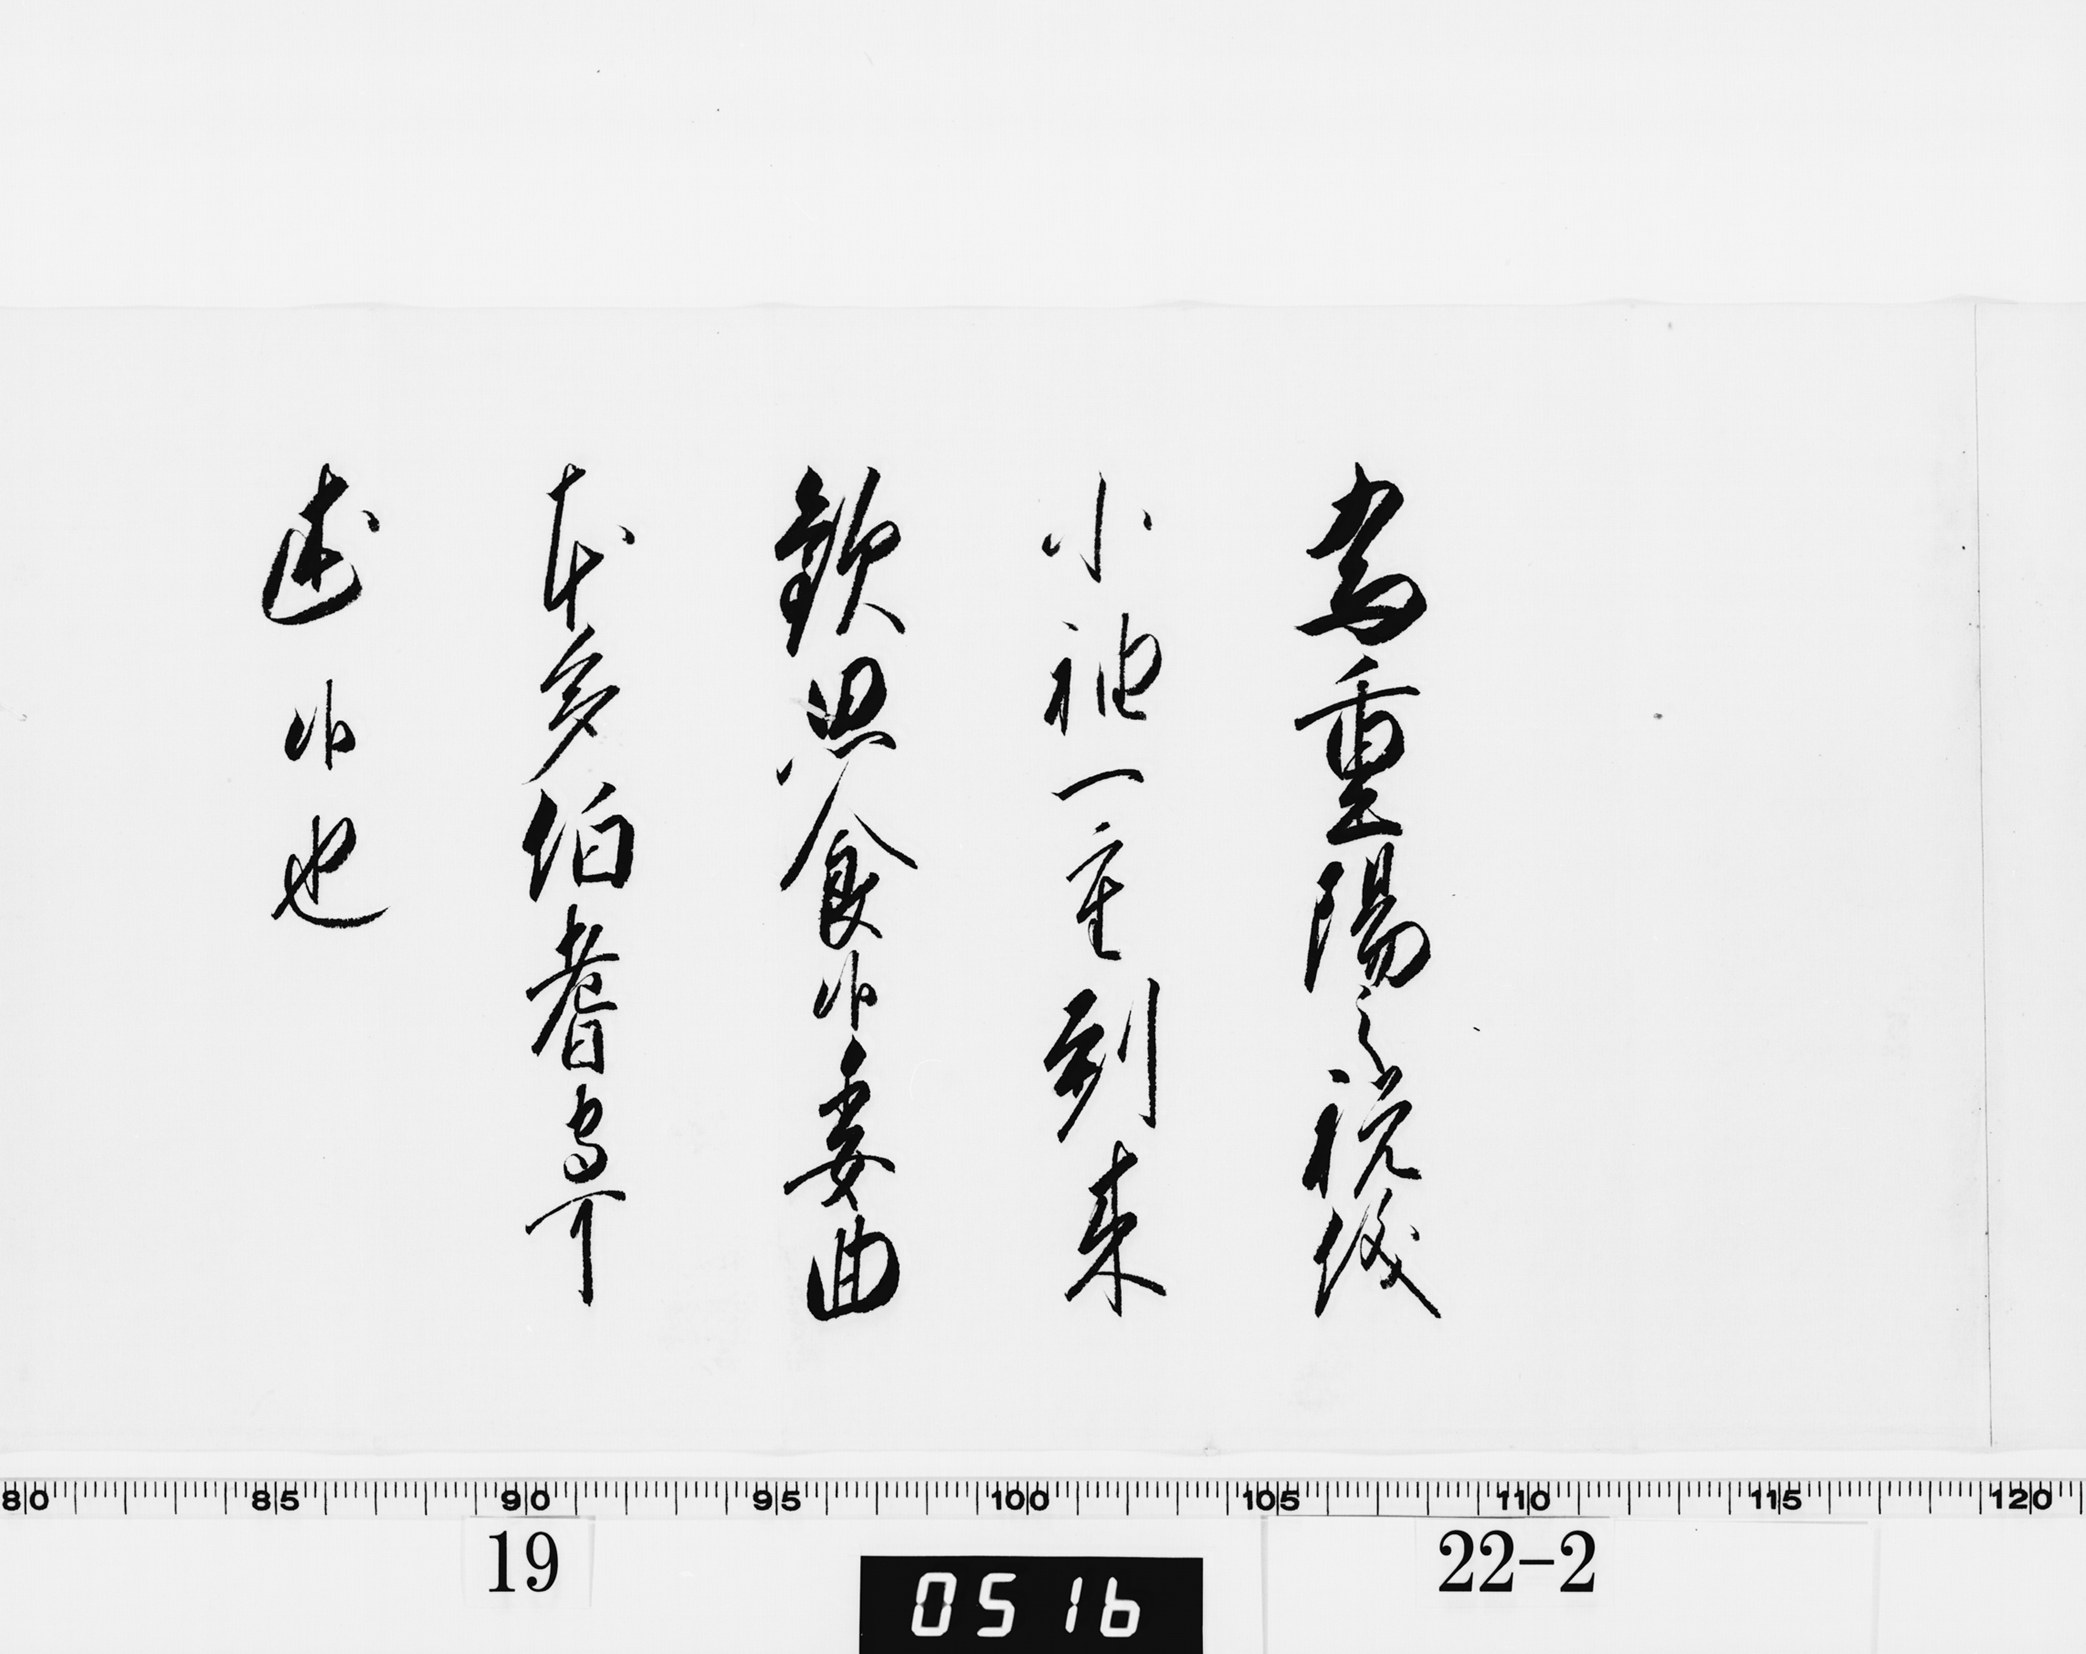 為重陽之祝儀
小袖一重到来
歓思食候委曲
本多伯耆守可
述候也
80 85 90 95 100 105 110 115 120
19
0516
22-2